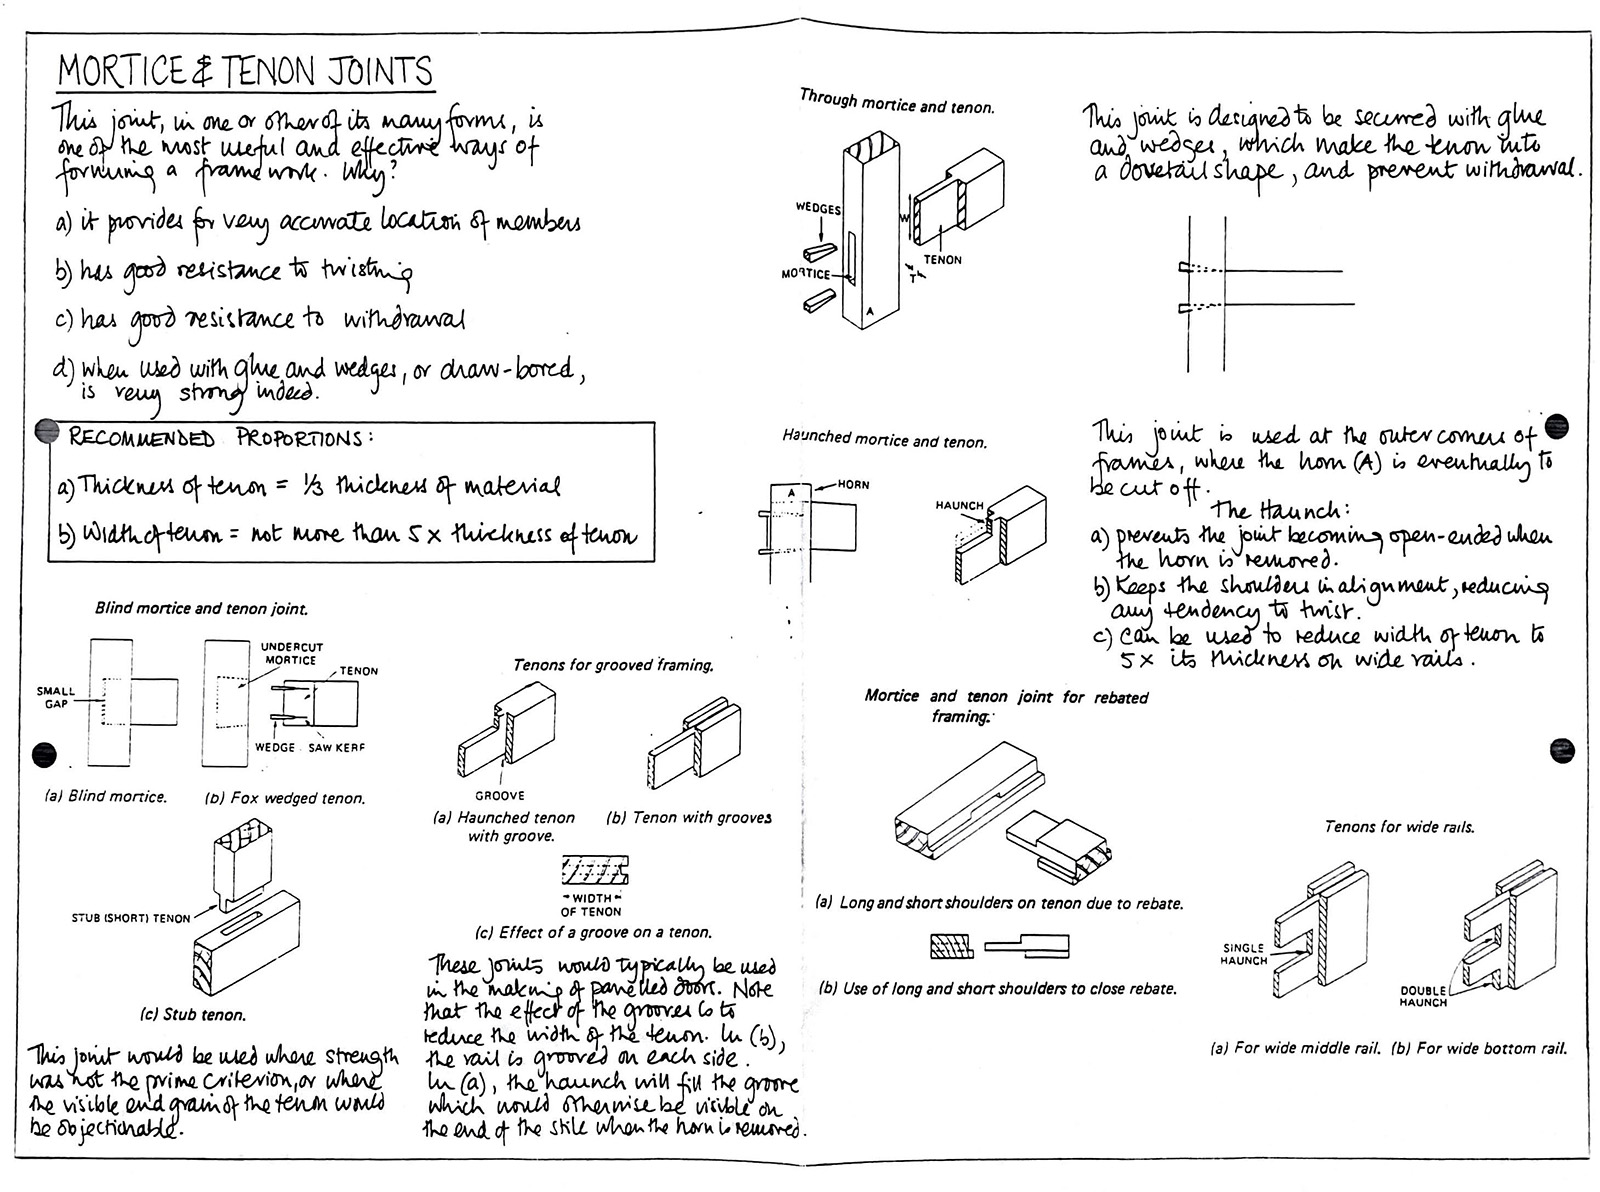 MORTICE & TENON JOINTS
This joint, in one or other of its many forms, is
one of the most useful and effective ways of
forming a framework. Why?
a) it provides for very accurate location of members
b) has good resistance to twisting
c) has good resistance to withdrawal
d) when used with glue and wedges, or draw-bored,
is very strong indeed.
RECOMMENDED PROPORTIONS:
a) Thickness of tenon = 1/3 thickness of material
b) Width of tenon = not more than 5 x thickness of tenon
Blind mortice and tenon joint.
SMALL
GAP
UNDERCUT
MORTICE
TENON
WEDGE
SAW KERF
(a) Blind mortice.
(b) Fox wedged tenon.
STUB (SHORT) TENON
(c) Stub tenon.
This joint would be used where strength
was not the prime criterion, or where
the visible end grain of the tenon would
be objectionable.
Tenons for grooved framing.
GROOVE
(a) Haunched tenon
with groove.
(b) Tenon with grooves
WIDTH
OF TENON
(c) Effect of a groove on a tenon.
These joints would typically be used
in the making of panelled doors. Note
that the effect of the grooves is to
reduce the width of the tenon. In (b),
the rail is grooved on each side.
In (a), the haunch will fill the groove
which would otherwise be visible on
the end of the stile when the horn is removed.
Through mortice and tenon.
WEDGES
MORTICE
A
W
TENON
T
This joint is designed to be secured with glue
and wedges, which make the tenon into
a dovetail shape, and prevent withdrawal.
Haunched mortice and tenon.
A
HORN
HAUNCH
This joint is used at the outer corners of
frames, where the horn (A) is eventually to
be cut off.
The Haunch:
a) prevents the joint becoming open-ended when
the horn is removed.
b) Keeps the shoulders in alignment, reducing
any tendency to twist.
c) Can be used to reduce width of tenon to
5x its thickness on wide rails.
Mortice and tenon joint for rebated
framing.
(a) Long and short shoulders on tenon due to rebate.
(b) Use of long and short shoulders to close rebate.
Tenons for wide rails.
SINGLE
HAUNCH
DOUBLE
HAUNCH
(a) For wide middle rail. (b) For wide bottom rail.